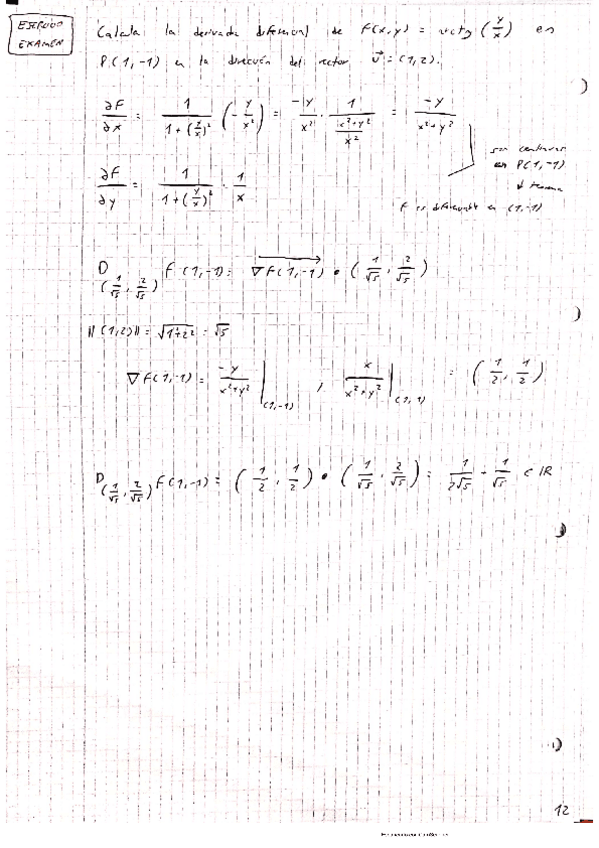 EJERCICIO
EXAMEN
Calcula la derivada direcional de F(x,y) = arctg (y/x) en
P(1,-1) en la dirección del vector v⃗ = (1,2).
∂F/∂x = 1/(1+(y/x)²) (-y/x²) = -y/x² · 1/((x²+y²)/x²) = -y/(x²+y²)
son continuas
en P(1,-1)
↓ teorema
F es diferenciable en (1,-1)
∂F/∂y = 1/(1+(y/x)²) · 1/x
D(1/√5, 2/√5) F(1,-1) = ∇F(1,-1) • (1/√5, 2/√5)
||(1,2)|| = √(1²+2²) = √5
∇F(1,-1) = -y/(x²+y²) |(1,-1) , x/(x²+y²) |(1,1) = (1/2, 1/2)
D(1/√5, 2/√5) F(1,-1) = (1/2, 1/2) • (1/√5, 2/√5) = 1/2√5 + 1/√5 ∈ IR
12